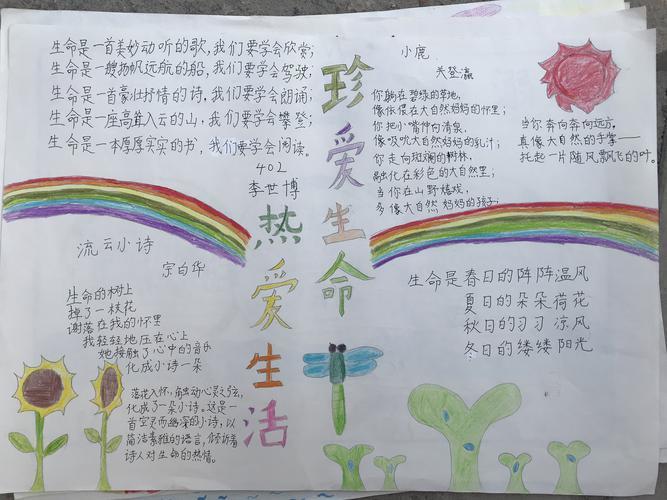 生命是一首美妙动听的歌,我们要学会欣赏;
生命是一艘扬帆远航的船,我们要学会驾驶;
生命是一首豪壮抒情的诗,我们要学会朗诵;
生命是一座高耸入云的山,我们要学会攀登;
生命是一本厚厚实实的书,我们要学会阅读。
402
李世博
珍爱生命
热爱生活
小鹿
关登瀛
你躺在碧绿的草地,
像依偎在大自然妈妈的怀里;
你把小嘴伸向清泉,
像吸吮大自然妈妈的乳汁;
你走向斑斓的树林,
融化在彩色的大自然里;
当你在山野嬉戏,
多像大自然妈妈的孩子;
当你奔向奔向远方。
真像大自然的手掌——
托起一片随风飘飞的叶。
流云小诗
宗白华
生命的树上
掉了一枝花
谢落在我的怀里
我轻轻地压在心上
她接触了心中的音乐
化成小诗一朵
落花入怀,触动心灵之弦,
化成了一朵小诗。这是一
首空灵而幽深的小诗,以
简洁素雅的语言,倾诉着
诗人对生命的热情。
生命是春日的阵阵温风
夏日的朵朵荷花
秋日的习习凉风
冬日的缕缕阳光